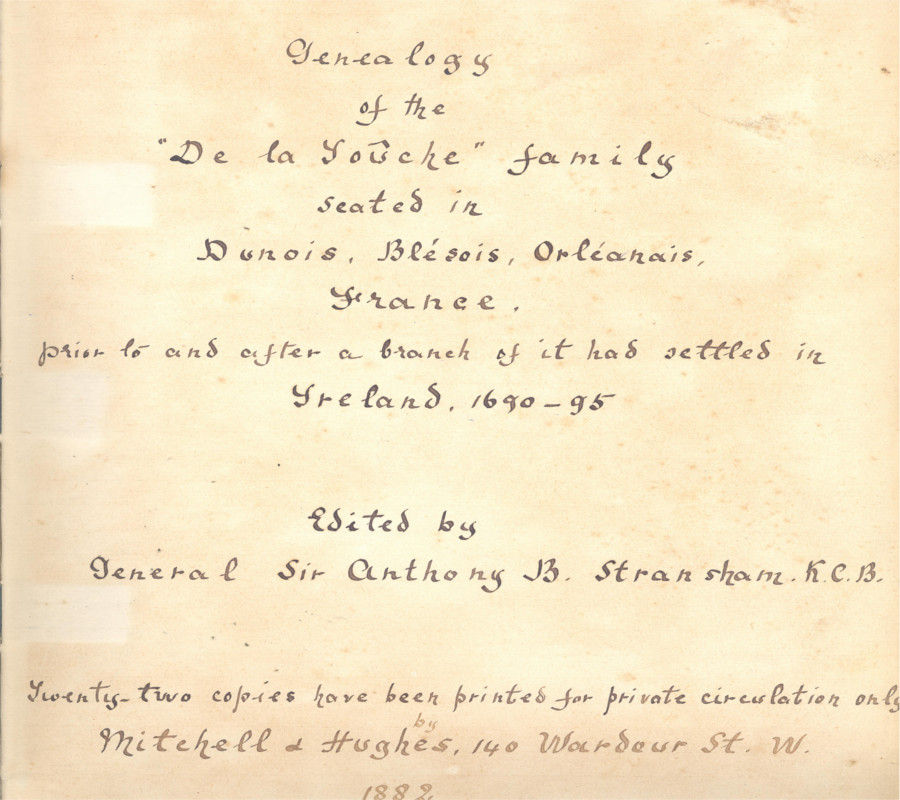 Genealogy
of the
"De la Toûche" family
seated in
Dunois, Blésois, Orléanais,
France.
prior to and after a branch of it had settled in
Ireland, 1690-95
Edited by
General Sir Anthony B. Stransham. K.C.B.
Twenty-two copies have been printed for private circulation only
by
Mitchell & Hughes, 140 Wardour St. W.
1882